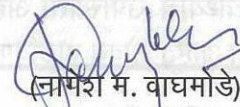 (नागेश म. वाघमोडे)